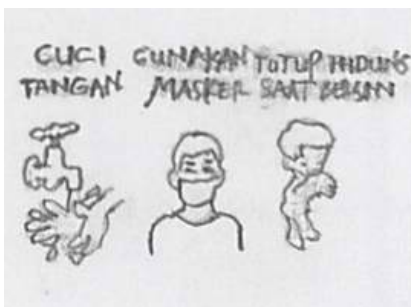 CUCI
TANGAN
GUNAKAN
MASKER
TUTUP HIDUNG
SAAT BERSIN